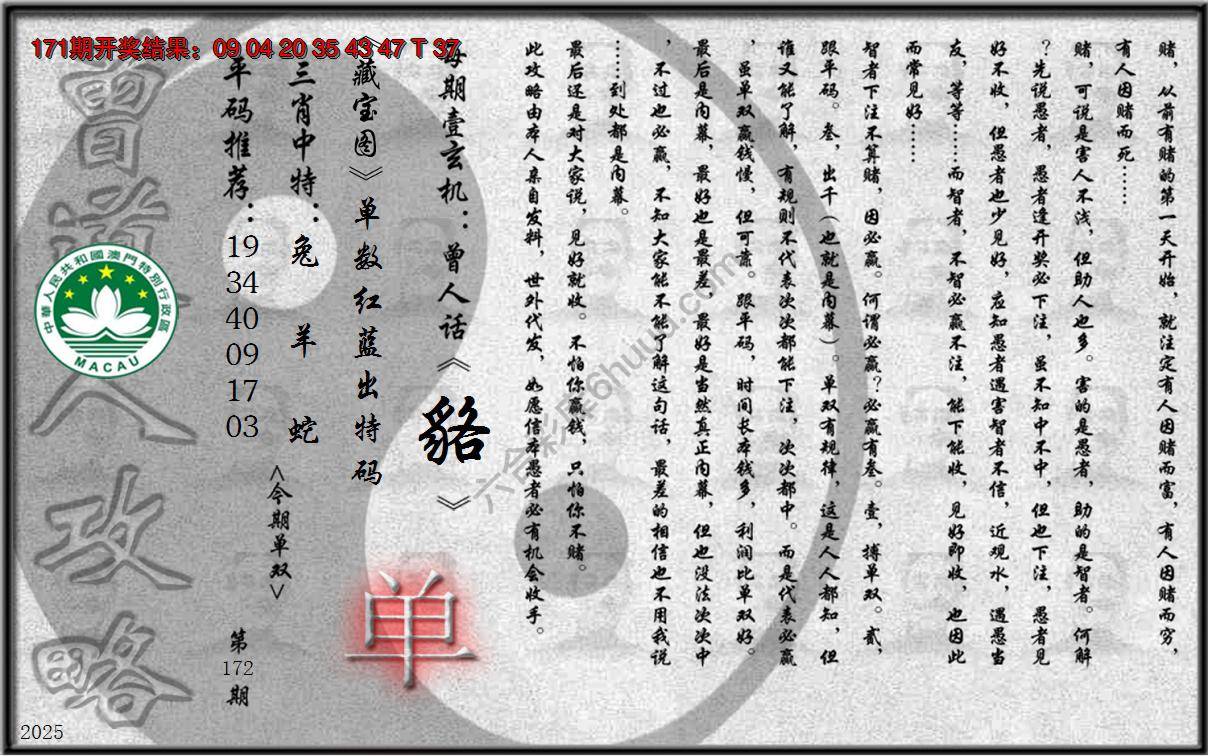 171期开奖结果：09 04 20 35 43 47 T 37
赌，从前有赌的第一天开始，就注定有人因赌而富，有人因赌而穷，
有人因赌而死……
赌，可说是害人不浅，但助人也多。害的是愚者，助的是智者。何解
？先说愚者，愚者逢开奖必下注，虽不知中不中，但也下注，愚者见
好不收，但愚者也少见好，应知愚者遇害智者不信，近观水，遇愚当
友，等等……而智者，不智必赢不注，能下能收，见好即收，也因此
而常见好……
智者下注不算赌，因必赢。何谓必赢？必赢有叁。壹，搏单双。贰，
跟平码。叁，出千（也就是内幕）。单双有规律，这是人人都知，但
谁又能了解，有规则不代表次次都能下注，次次都中。而是代表必赢
，虽单双赢钱慢，但可靠。跟平码，时间长本钱多，利润比单双好。
最后是内幕，最好也是最差，最好是当然真正内幕，但也没法次次中
，不过也必赢，不知大家能不能了解这句话，最差的相信也不用我说
……到处都是内幕。
最后还是对大家说，见好就收。不怕你赢钱，只怕你不赌。
此攻略由本人亲自发料，世外代发，如愿信本愚者必有机会收手。
每期壹玄机：曾人话《貉》
《藏宝图》单数红蓝出特码
单
三肖中特：兔 羊 蛇
<今期单双>
平码推荐：19 34 40 09 17 03
第172期
曾道人攻略
中華人民共和國澳門特別行政區
MACAU
六合彩库6huuu.com
2025